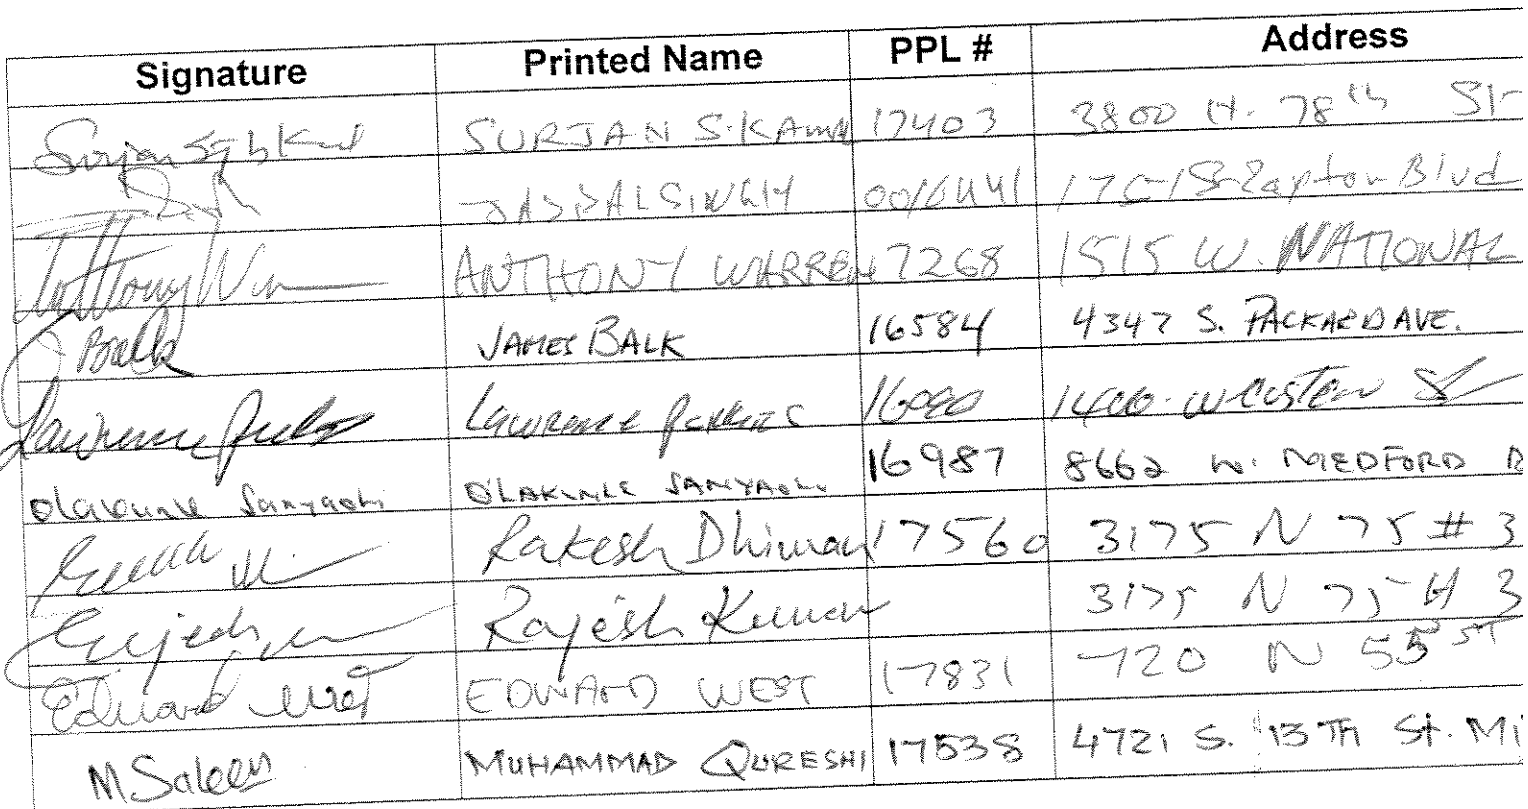 Signature Printed Name PPL # Address
SURJAN S. 17403 3800 78th St
JASPAL SINGH 0016441 Blvd
Anthony ANTHONY WARREN 7268 1515 W. NATIONAL
Balk JAMES BALK 16584 4347 S. PACKARD AVE.
Lawrence LAWRENCE
Olakunle Sanyaolu OLAKUNLE SANYAOLU 16987 8662 W. MEDFORD
Rakesh Dhiman 17560 3175 N 75 # 3
Rajesh Kumar 3175 N 75 # 3
Edward West EDWARD WEST 17831 720 N 55 ST
M Saleem MUHAMMAD QURESHI 17538 4721 S. 13TH St. Mi